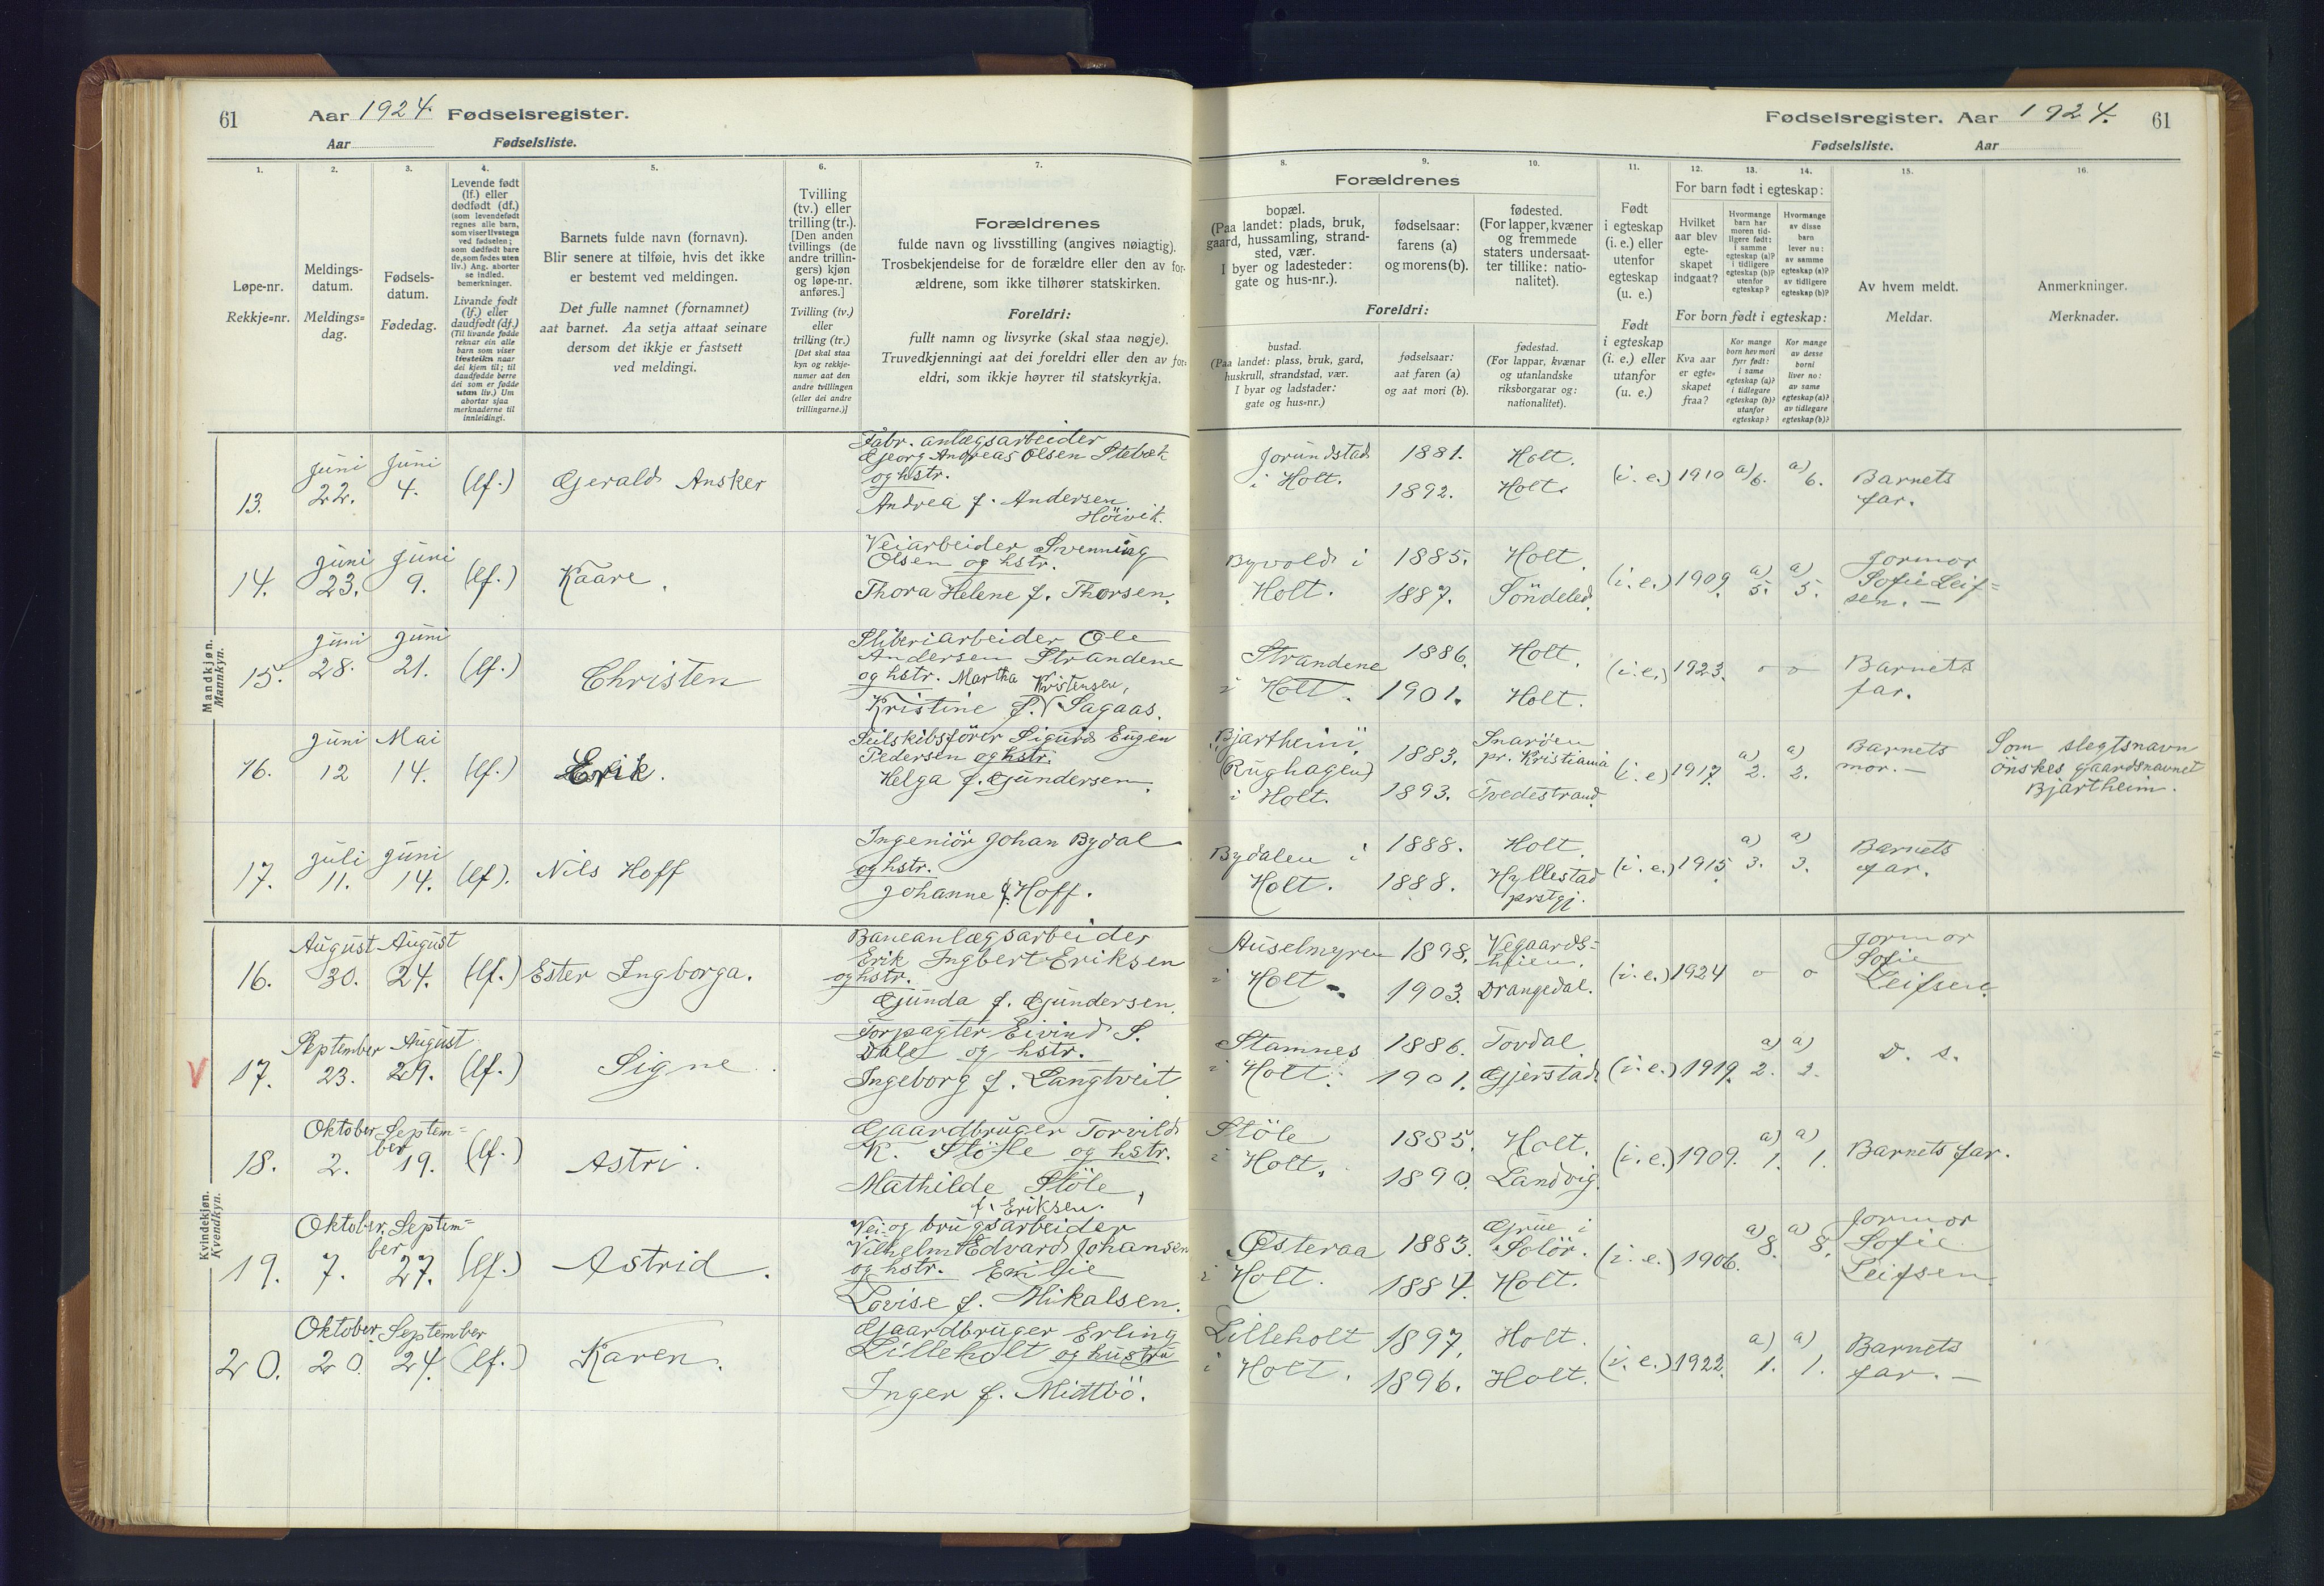 61 Aar 1924. Fødselsregister.
Aar Fødselsliste.
Fødselsregister. Aar 1924. 61
Fødselsliste. Aar
1. 2. 3. 4. 5. 6. 7.
Løpe-nr.
Rekkje=nr.
Meldings-
datum.
Meldings=
dag.
Fødsels-
datum.
Fødedag.
Levende født
(lf.) eller
dødfødt (df.)
(som levendefødt
regnes alle barn,
som viser livstegn
ved fødselen;
som dødfødt bare
de, som fødes uten
liv.) Ang. aborter
se indled.
bemerkninger.
Livande født
(lf.) eller
daudfødt (df.)
(Til livande fødde
reknar ein alle
barn som viser
livsteikn naar
dei kjem til; til
daudfødde berre
dei som er fødde
utan liv.) Um
abortar sjaa
merknaderne til
innleidingi.
Barnets fulde navn (fornavn).
Blir senere at tilføie, hvis det ikke
er bestemt ved meldingen.
Det fulle namnet (fornamnet)
aat barnet. Aa setja attaat seinare
dersom det ikkje er fastsett
ved meldingi.
Tvilling
(tv.) eller
trilling (tr.).
[Den anden
tvillings (de
andre trillin-
gers) kjøn
og løpe-nr.
anføres.]
Tvilling (tv.)
eller
trilling (tr.)
[Det skal staa
kyn og rekkje-
numer aat den
andre tvillingen
(eller dei andre
trillingarne.)]
Forældrenes
fulde navn og livsstilling (angives nøiagtig).
Trosbekjendelse for de forældre eller den av for-
ældrene, som ikke tilhører statskirken.
Foreldri:
fullt namn og livsyrke (skal staa nøgje).
Truvedkjenningi aat dei foreldri eller den av for-
eldri, som ikkje høyrer til statskyrkja.
8. 9. 10. 11. 12. 13. 14. 15. 16.
Forældrenes
bopæl.
(Paa landet: plads, bruk,
gaard, hussamling, strand-
sted, vær.
I byer og ladesteder:
gate og hus-nr.).
fødselsaar:
farens (a)
og morens (b).
fødested.
(For lapper, kvæner
og fremmede
staters undersaat-
ter tillike: natio-
nalitet).
Foreldri:
bustad.
(Paa landet: plass, bruk, gard,
huskrull, strandstad, vær.
I byar og ladstader:
gate og hus=nr.)
fødselsaar:
aat faren (a)
og aat mori (b).
fødestad.
(For lappar, kvænar
og utanlandske
riksborgarar og:
nationalitet).
Født
i egteskap
(i. e.) eller
utenfor
egteskap
(u. e.)
Født
i egteskap
(i. e.) eller
utanfor
(u. e.)
For barn født i egteskap:
Hvilket
aar blev
egte-
skapet
indgaat?
Hvormange
barn har
moren tid-
ligere født:
i samme
egteskap (a)?
i tidligere
egteskap (b)?
utenfor
egteskap?
Hvormange
av disse
barn
lever nu:
av samme
egteskap (a)?
av tidligere
egteskap (b)?
For born født i egteskap:
Kva aar
er egte=
skapet
fraa?
Kor mange
born hev mori
fyrr født:
i same
egteskap (a)?
i tidlegare
egteskap (b)?
utanfor
egteskap?
Kor mange
av desse
borni
liver no:
av same
egteskap (a)?
av tidlegare
egteskap (b)?
Av hvem meldt.
Meldar.
Anmerkninger.
Merknader.
Mandkjøn.
Mannkyn.
13. Juni 22. Juni 4. (lf.) Gerald Ansker
Fabr. anlægsarbeider
Georg Andreas Olsen Stebæk
og hstr.
Andrea f. Andersen
Höivik.
Jorundstad i Holt. 1881. 1892. Holt. Holt. (i. e.) 1910 a) 6. a) 6. Barnets far.
14. Juni 23. Juni 9. (lf.) Kaare.
Veiarbeider Svenning
Olsen og hstr.
Thora Helene f. Thorsen.
Byvold i Holt. 1885. 1887. Holt. Söndeled. (i. e.) 1909. a) 5. a) 5. Jormor Sofie Leif=sen. —
15. Juni 28. Juni 21. (lf.) Christen
Sliberiarbeider Ole
Andersen Strandene
og hstr. Martha Kristensen,
Kristine f. V Sagaas.
Strandene i Holt. 1886. 1901. Holt. Holt. (i. e.) 1923. o o Barnets far.
16. Juni 12 Mai 14. (lf.) Erik.
Seilskibsförer Sigurd Eugen
Pedersen og hstr.
Helga f. Gundersen.
"Bjartheim" (Rughagen) i Holt. 1883. 1893. Snaröen pr. Kristiania Tvedestrand. (i. e.) 1917. a) 2. a) 2. Barnets mor. —
Som slegtsnavn
önskes gaardsnavnet
Bjartheim.
17. Juli 11. Juni 14. (lf). Nils Hoff
Ingeniör Johan Bydal
og hstr.
Johanne f. Hoff.
Bydalen i Holt. 1888. 1888. Holt. Hyllestad prstgj. (i. e.) 1915. a) 3. a) 3. Barnets far.
Kvindekjøn.
Kvendkyn.
16. August 30. August 24. (lf.) Ester Ingborga.
Baneanlægsarbeider
Erik Ingbert Eriksen
og hstr.
Gunda f. Gundersen.
Auselmyren i Holt. 1898. 1903. Vegaards=heien. Drangedal. (i. e.) 1924 o o Jormor Sofie Leifsen.
V 17. September 23. August 29. (lf.) Signe.
Forpagter Eivind S.
Dale og hstr.
Ingeborg f. Langtveit.
Stamnes i Holt. 1886. 1901. Tovdal. Gjerstad. (i. e.) 1919. a) 2. a) 2. D. s.
18. Oktober 2. Septem=ber 19. (lf.) Astri.
Gaardbruger Torvild
K. Stöle og hstr.
Mathilde Stöle,
f. Eriksen.
Stöle i Holt. 1885. 1890. Holt. Landvig. (i. e.) 1909. a) 1. a) 1. Barnets far.
19. Oktober 7. Septem=ber 27. (lf.) Astrid.
Vei- og brugsarbeider
Vilhelm Edvard Johansen
og hstr. Emilie
Lovise f. Mikalsen.
Østeraa i Holt. 1883. 1884. Grue i Solör. Holt. (i. e.) 1906. a) 8. a) 8. Jormor Sofie Leifsen.
20. Oktober 20. September 24. (lf.) Karen.
Gaardbruger Erling
Lilleholt og hustru
Inger f. Midtbö.
Lilleholt i Holt. 1897. 1896. Holt. Holt. (i. e.) 1922. a) 1. a) 1. Barnets far. —